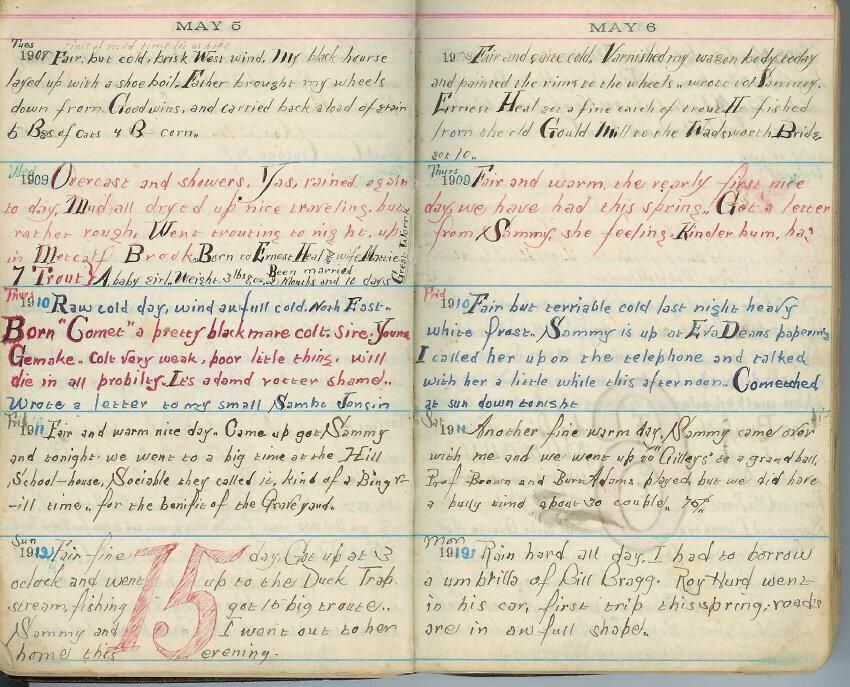 MAY 5
Tues
1908 Fair, but cold, brisk West wind, My black hourse
layed up with a shoe boil. Father brought my wheels
down from Goodwins, and carried back a load of grain
5 Bgs of oats 4 B corn..
Wed
1909 Overcast and showers. Yas, rained again
to day, Mud all dryed up nice traveling, but
rather rough, Went trouting to night, up
in Metcalf Brook. Born to Ernest Heal and wife Hattie
7 Trout} A baby girl. Weight, 3 lbs Been married
2 Months and 10 days
Great Work
Thurs
1910 Raw cold day, wind awfull cold. North East..
Born "Comet" a pretty black mare colt. Sire. Young
Gemake.. Colt very weak, poor litle thing, will
die in all probilty. It's a damd rotter shame..
Wrote a letter to my small Sambo Jonsin
Fri
1911 Fair and warm nice day.. Came up got Sammy
and tonight we went to a big time at the Hill
School-house, Sociable they called it, kind of a Bingv-
-ill time.. for the benifit of the Graveyard..
Sun
1912 Fair fine day. Got up at 3
oclock and went up to the Duck Trap
stream, fishing got 15 big troute..
Sammy and I went out to her
home this evening.
15
MAY 6
1908 Fair and quite cold, Varnished my wagon body today
and painted the rims to the wheels.. wrote to Sammy.
Ernest Heal got a fine catch of trout. He fished
from the old Gould Mill to the Wadsworth Bridg
got 10..
Thurs
1909 Fair and warm, the rearly first nice
day we have had this spring.. Got a letter
from Sammy, she feeling. Kinder bum, has
Frid
1910 Fair but terriable cold last night heavy
white frost.. Sammy is up at Eva Deans papering
I called her up on the telephone and talked
with her a little while this afternoon.. Comet died
at sun down tonight
Sat
1911 Another fine warm day, Sammy came over
with me and we went up to "Gilleys" to a grand ball.
Prof Brown and Burt Adams played, but we did have
a bully time about 30 couple.. 75¢
Mon
1912 Rain hard all day, I had to borrow
a umbrilla of Bill Bragg. Roy Hurd went
in his car, first trip this spring; roads
are in awfull shape..